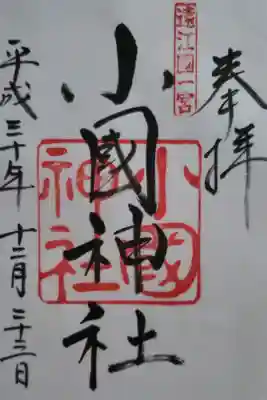 奉拝
遠江國一宮
小國神社
小國神社
平成三十年十二月二十三日